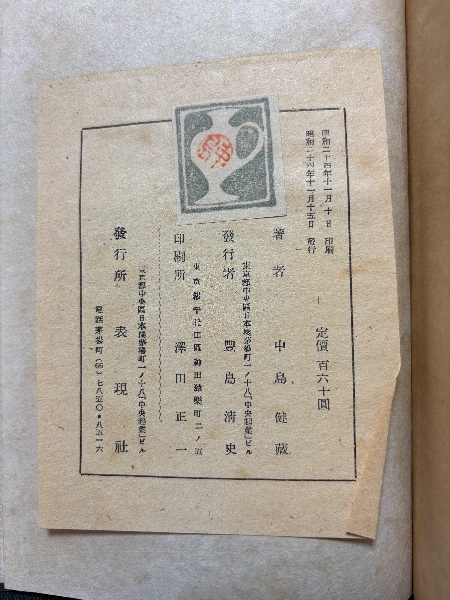 昭和二十四年十一月十日 印刷
昭和二十四年十一月十五日 發行
定價 百六十圓
著者 中島健蔵
東京都中央區日本橋茅場町一ノ十八「中央起業」ビル
發行者 豐島淸史
東京都千代田區神田
町二ノ五
印刷所 澤田正一
東京都中央區日本橋茅場町一ノ十八「中央起業」ビル
發行所 表現社
電話茅場町(66)